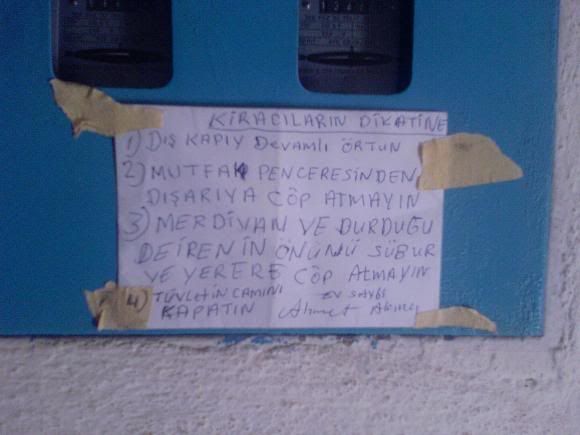 KİRACILARIN DİKATİNE
1) DIŞ KAPIY DEVAMLI ÖRTÜN
2) MUTFAK PENCERESİNDEN
DIŞARIYA ÇÖP ATMAYIN
3) MERDİVAN VE DURDUĞU
DEİRENİN ÖNÜNÜ SÜBUR
VE YERERE ÇÖP ATMAYIN
4) TUVLETİN CAMINI
KAPATIN
EV SAYBİ
Ahmet